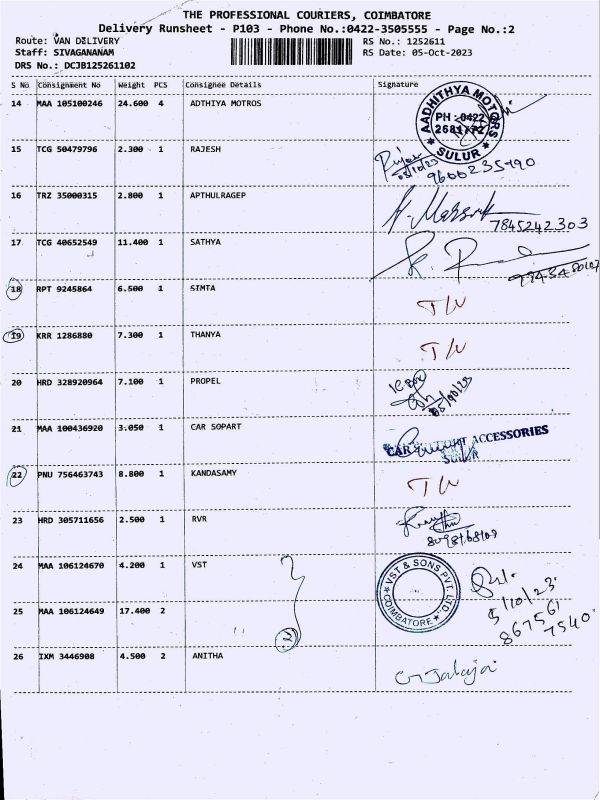 THE PROFESSIONAL COURIERS, COIMBATORE
Delivery Runsheet - P103 - Phone No.:0422-3505555 - Page No.:2
Route: VAN DELIVERY RS No.: 1252611
Staff: SIVAGANANAM RS Date: 05-Oct-2023
DRS No.: DCJB125261102
S No Consignment No Weight PCS Consignee Details Signature
14 MAA 105100246 24.600 4 ADTHIYA MOTROS
AADHITHYA MOTORS
PH : 0422
2681772
SULUR
15 TCG 50479796 2.300 1 RAJESH
9600235490
16 TRZ 35000315 2.800 1 APTHULRAGEP
7845242303
17 TCG 40652549 11.400 1 SATHYA
18 RPT 9245864 6.500 1 SIMTA T/N
19 KRR 1286880 7.300 1 THANYA T/N
20 HRD 328920964 7.100 1 PROPEL
21 MAA 100436920 3.050 1 CAR SOPART
CAR ACCESSORIES
SULUR
22 PNU 756463743 8.800 1 KANDASAMY T/N
23 HRD 305711656 2.500 1 RVR
24 MAA 106124670 4.200 1 VST
VST & SONS PVT. LTD.
COIMBATORE
5/10/23
25 MAA 106124649 17.400 2
867561
7540
26 IXM 3446908 4.500 2 ANITHA
G Jalaja